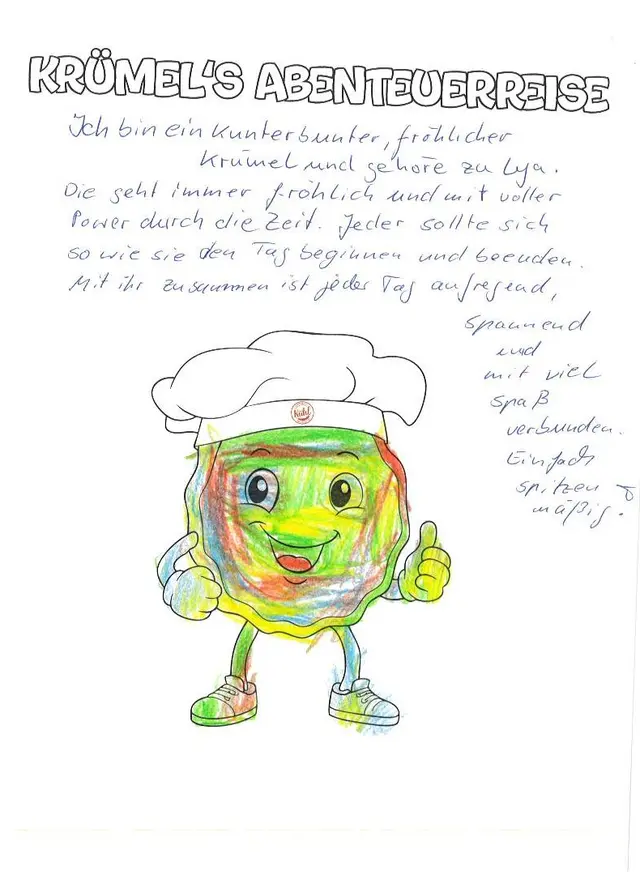 KRÜMEL'S ABENTEUERREISE
Ich bin ein kunterbunter, fröhlicher
Krümel und gehöre zu Lya.
Die geht immer fröhlich und mit voller
Power durch die Zeit. Jeder sollte sich
so wie sie den Tag beginnen und beenden.
Mit ihr zusammen ist jeder Tag aufregend,
spannend
und
mit viel
Spaß
verbunden.
Einfach
spitzen
mäßig.